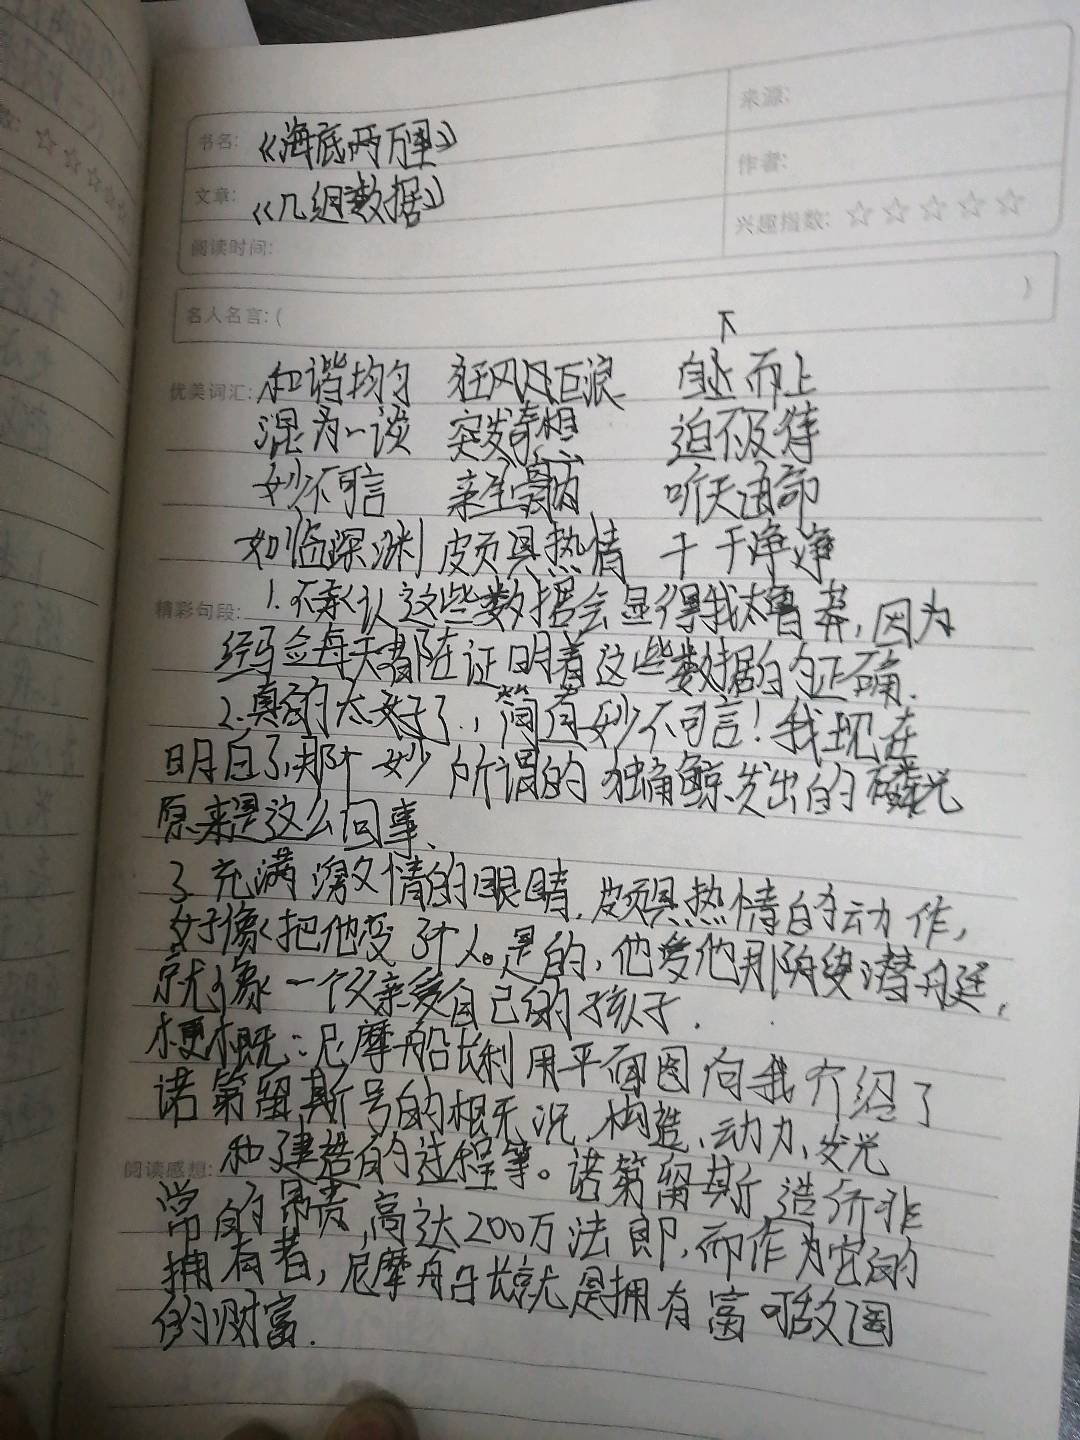 书名: 《海底两万里》
来源:
文章: 《几组数据》
作者:
阅读时间:
兴趣指数: ☆☆☆☆☆
名人名言:( )
优美词汇: 和谐均匀 狂风巨浪 自上而上
混为一谈 突发奇想 迫不及待
妙不可言 亲至奥 听天由命
如临深渊 颇具热情 干干净净
精彩句段: 1.不承认这些数据会显得我太鲁莽,因为
经验每天都在证明着这些数据的正确.
2.真的太好了,简直妙不可言!我现在
明白了,那个妙所谓的独角鲸发出的磷光
原来是这么回事.
3.充满激情的眼睛,颇具热情的动作,
好像把他变了个人。是的,他爱他那艘潜舟艇,
就像一个父亲爱自己的孩子.
梗概:尼摩船长利用平面图向我介绍了
诺第留斯号的概况、构造、动力、发光
阅读感想: 和建造的过程等。诺第留斯造价非
常的昂贵,高达200万法郎,而作为它的
拥有者,尼摩船长就是拥有富可敌国
的财富.